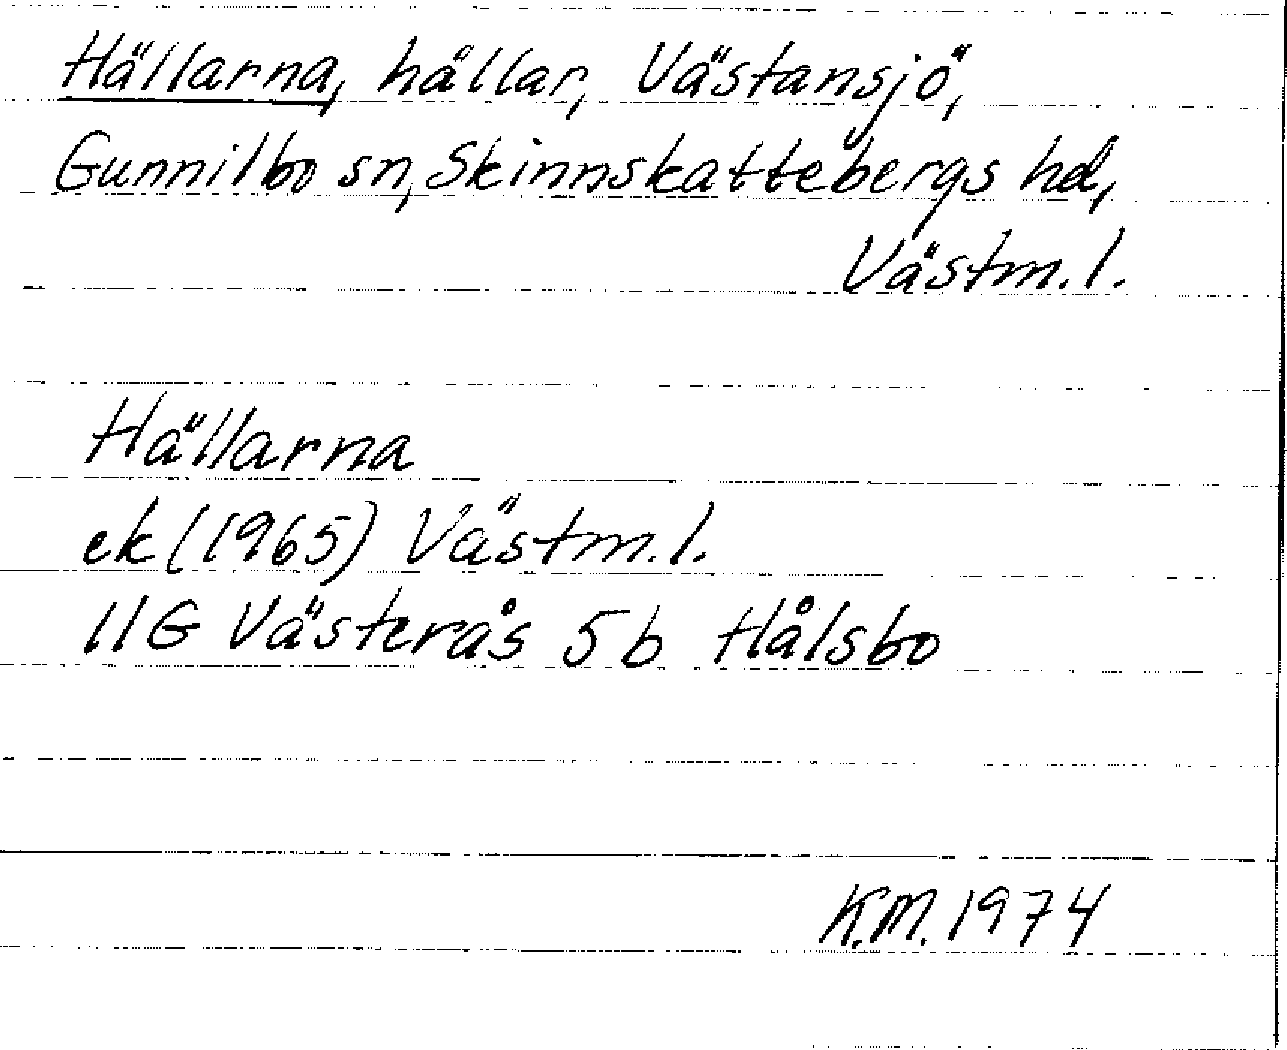 Hällarna, hällar, Västansjö,
Gunnilbo sn, Skinnskattebergs hd,
Västm. l.
Hällarna
ek (1965) Västm. l.
11G Västerås 5b Hålsbo
K.M. 1974